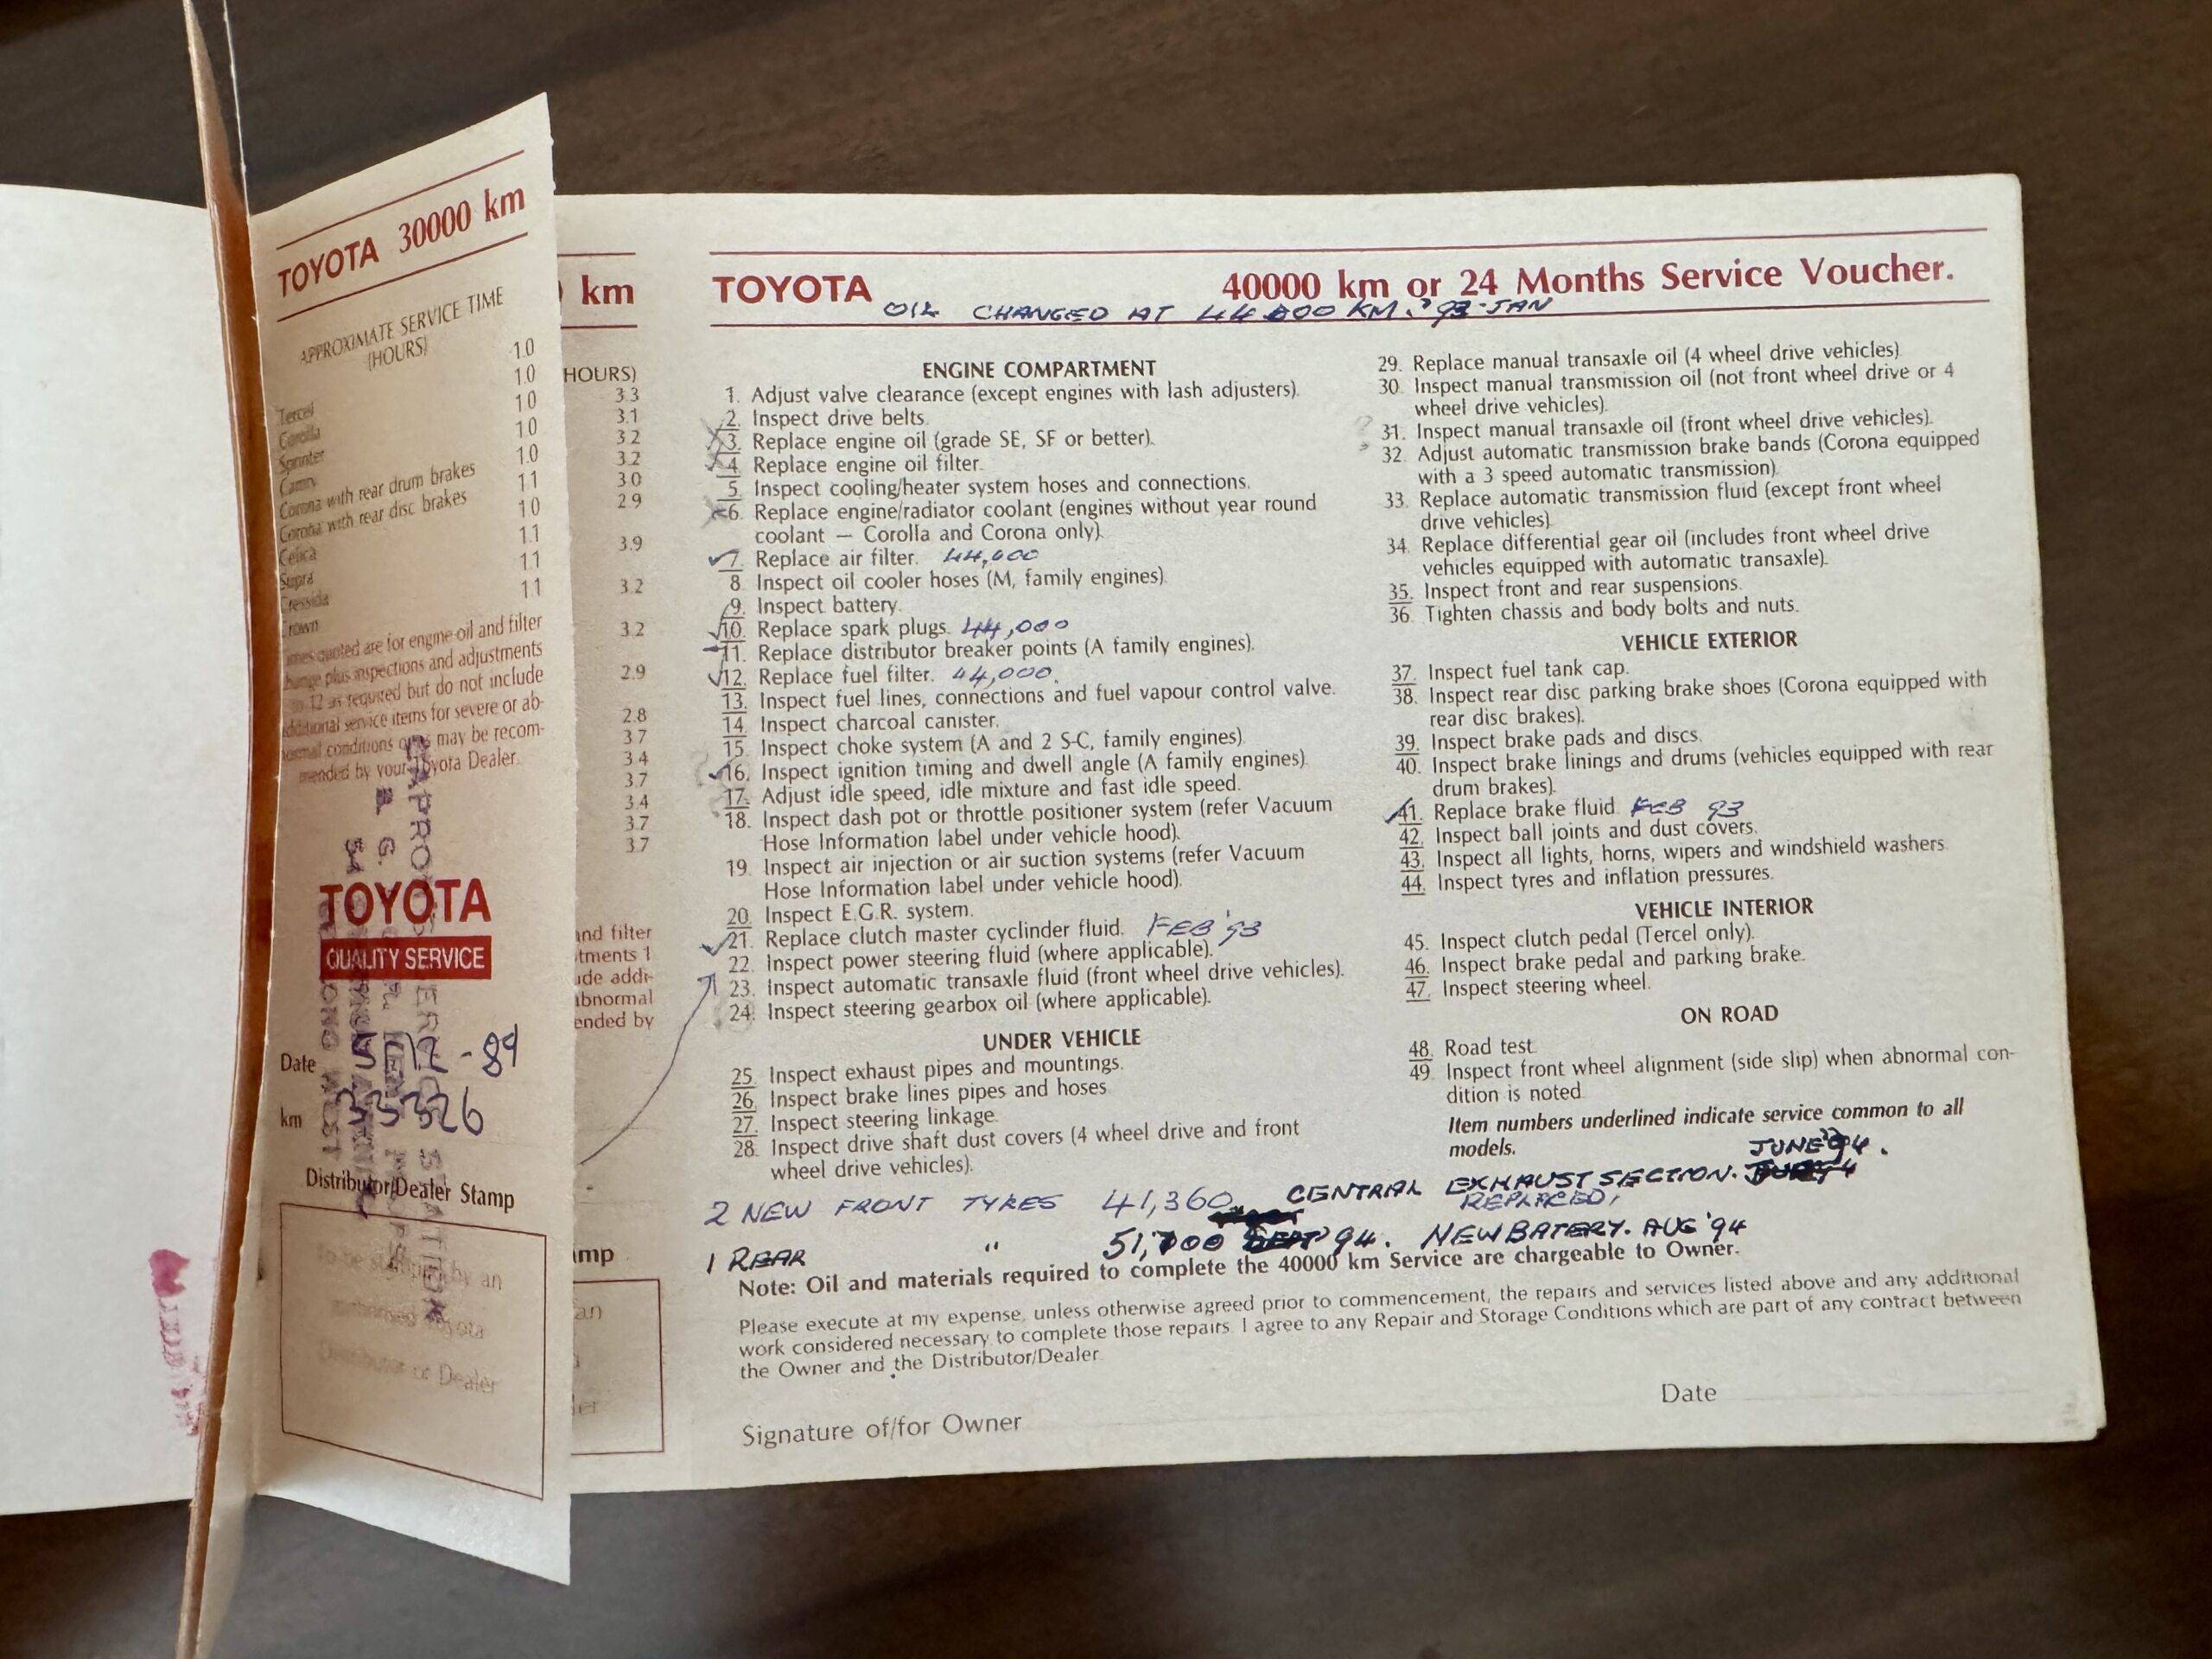 TOYOTA 30000 km
APPROXIMATE SERVICE TIME
(HOURS)
Tercel 1.0
Corolla 1.0
Sprinter 1.0
Camry 1.0
Corona with rear drum brakes 1.0
Corona with rear disc brakes 1.1
Celica 1.0
Supra 1.1
Cressida 1.1
Crown 1.1
quoted are for engine oil and filter
plus inspections and adjustments
to 12 as required but do not include
additional service items for severe or ab-
normal conditions or may be recom-
mended by your Toyota Dealer.
TOYOTA
QUALITY SERVICE
Date 12 - 89
km 33326
Distributor/Dealer Stamp
To be stamped by an
authorised Toyota
Distributor or Dealer
km
HOURS)
3.3
3.1
3.2
3.2
3.0
2.9
3.9
3.2
3.2
2.9
2.8
3.7
3.4
3.7
3.4
3.7
3.7
and filter
tments 1
ude addi-
abnormal
ended by
amp
an
er
TOYOTA 40000 km or 24 Months Service Voucher.
OIL CHANGED AT 44000 KM. '93 JAN
ENGINE COMPARTMENT
1. Adjust valve clearance (except engines with lash adjusters).
2. Inspect drive belts.
3. Replace engine oil (grade SE, SF or better).
4. Replace engine oil filter.
5. Inspect cooling/heater system hoses and connections.
6. Replace engine/radiator coolant (engines without year round
coolant — Corolla and Corona only).
7. Replace air filter. 44,000
8. Inspect oil cooler hoses (M, family engines).
9. Inspect battery.
10. Replace spark plugs. 44,000
11. Replace distributor breaker points (A family engines).
12. Replace fuel filter. 44,000.
13. Inspect fuel lines, connections and fuel vapour control valve.
14. Inspect charcoal canister.
15. Inspect choke system (A and 2 S-C, family engines).
16. Inspect ignition timing and dwell angle (A family engines).
17. Adjust idle speed, idle mixture and fast idle speed.
18. Inspect dash pot or throttle positioner system (refer Vacuum
Hose Information label under vehicle hood).
19. Inspect air injection or air suction systems (refer Vacuum
Hose Information label under vehicle hood).
20. Inspect E.G.R. system.
21. Replace clutch master cyclinder fluid. FEB '93
22. Inspect power steering fluid (where applicable).
23. Inspect automatic transaxle fluid (front wheel drive vehicles).
24. Inspect steering gearbox oil (where applicable).
UNDER VEHICLE
25. Inspect exhaust pipes and mountings.
26. Inspect brake lines pipes and hoses
27. Inspect steering linkage.
28. Inspect drive shaft dust covers (4 wheel drive and front
wheel drive vehicles).
29. Replace manual transaxle oil (4 wheel drive vehicles).
30. Inspect manual transmission oil (not front wheel drive or 4
wheel drive vehicles).
? 31. Inspect manual transaxle oil (front wheel drive vehicles).
32. Adjust automatic transmission brake bands (Corona equipped
with a 3 speed automatic transmission).
33. Replace automatic transmission fluid (except front wheel
drive vehicles).
34. Replace differential gear oil (includes front wheel drive
vehicles equipped with automatic transaxle).
35. Inspect front and rear suspensions.
36. Tighten chassis and body bolts and nuts.
VEHICLE EXTERIOR
37. Inspect fuel tank cap.
38. Inspect rear disc parking brake shoes (Corona equipped with
rear disc brakes).
39. Inspect brake pads and discs.
40. Inspect brake linings and drums (vehicles equipped with rear
drum brakes).
41. Replace brake fluid. FEB 93
42. Inspect ball joints and dust covers.
43. Inspect all lights, horns, wipers and windshield washers.
44. Inspect tyres and inflation pressures.
VEHICLE INTERIOR
45. Inspect clutch pedal (Tercel only).
46. Inspect brake pedal and parking brake.
47. Inspect steering wheel.
ON ROAD
48. Road test.
49. Inspect front wheel alignment (side slip) when abnormal con-
dition is noted.
Item numbers underlined indicate service common to all
models. JUNE '94.
2 NEW FRONT TYRES 41,360 CENTRAL EXHAUST SECTION.
REPLACED,
1 REAR " 51,700 SEPT '94. NEW BATERY. AUG '94
Note: Oil and materials required to complete the 40000 km Service are chargeable to Owner.
Please execute at my expense, unless otherwise agreed prior to commencement, the repairs and services listed above and any additional
work considered necessary to complete those repairs. I agree to any Repair and Storage Conditions which are part of any contract between
the Owner and the Distributor/Dealer.
Signature of/for Owner Date